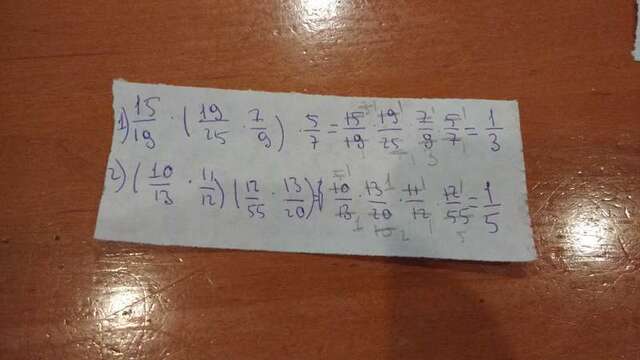 1) 15/19 · (19/25 · 7/9) · 5/7 = 15/19 · 19/25 7/9 · 5/7 = 1/3
2) (10/13 · 11/12) (12/55 · 13/20) = 10/13 · 13/20 · 11/12 · 12/55 = 1/5